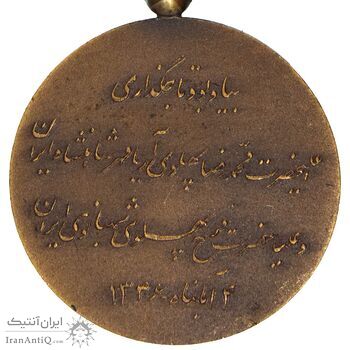 بیاد بود تاجگذاری
اعلیحضرت محمد رضا پهلوی آریامهر شاهنشاه ایران
و علیاحضرت فرح پهلوی شهبانوی ایران
۴ آبانماه ۱۳۴۶
ایران آنتیک
IranAntiQ.com